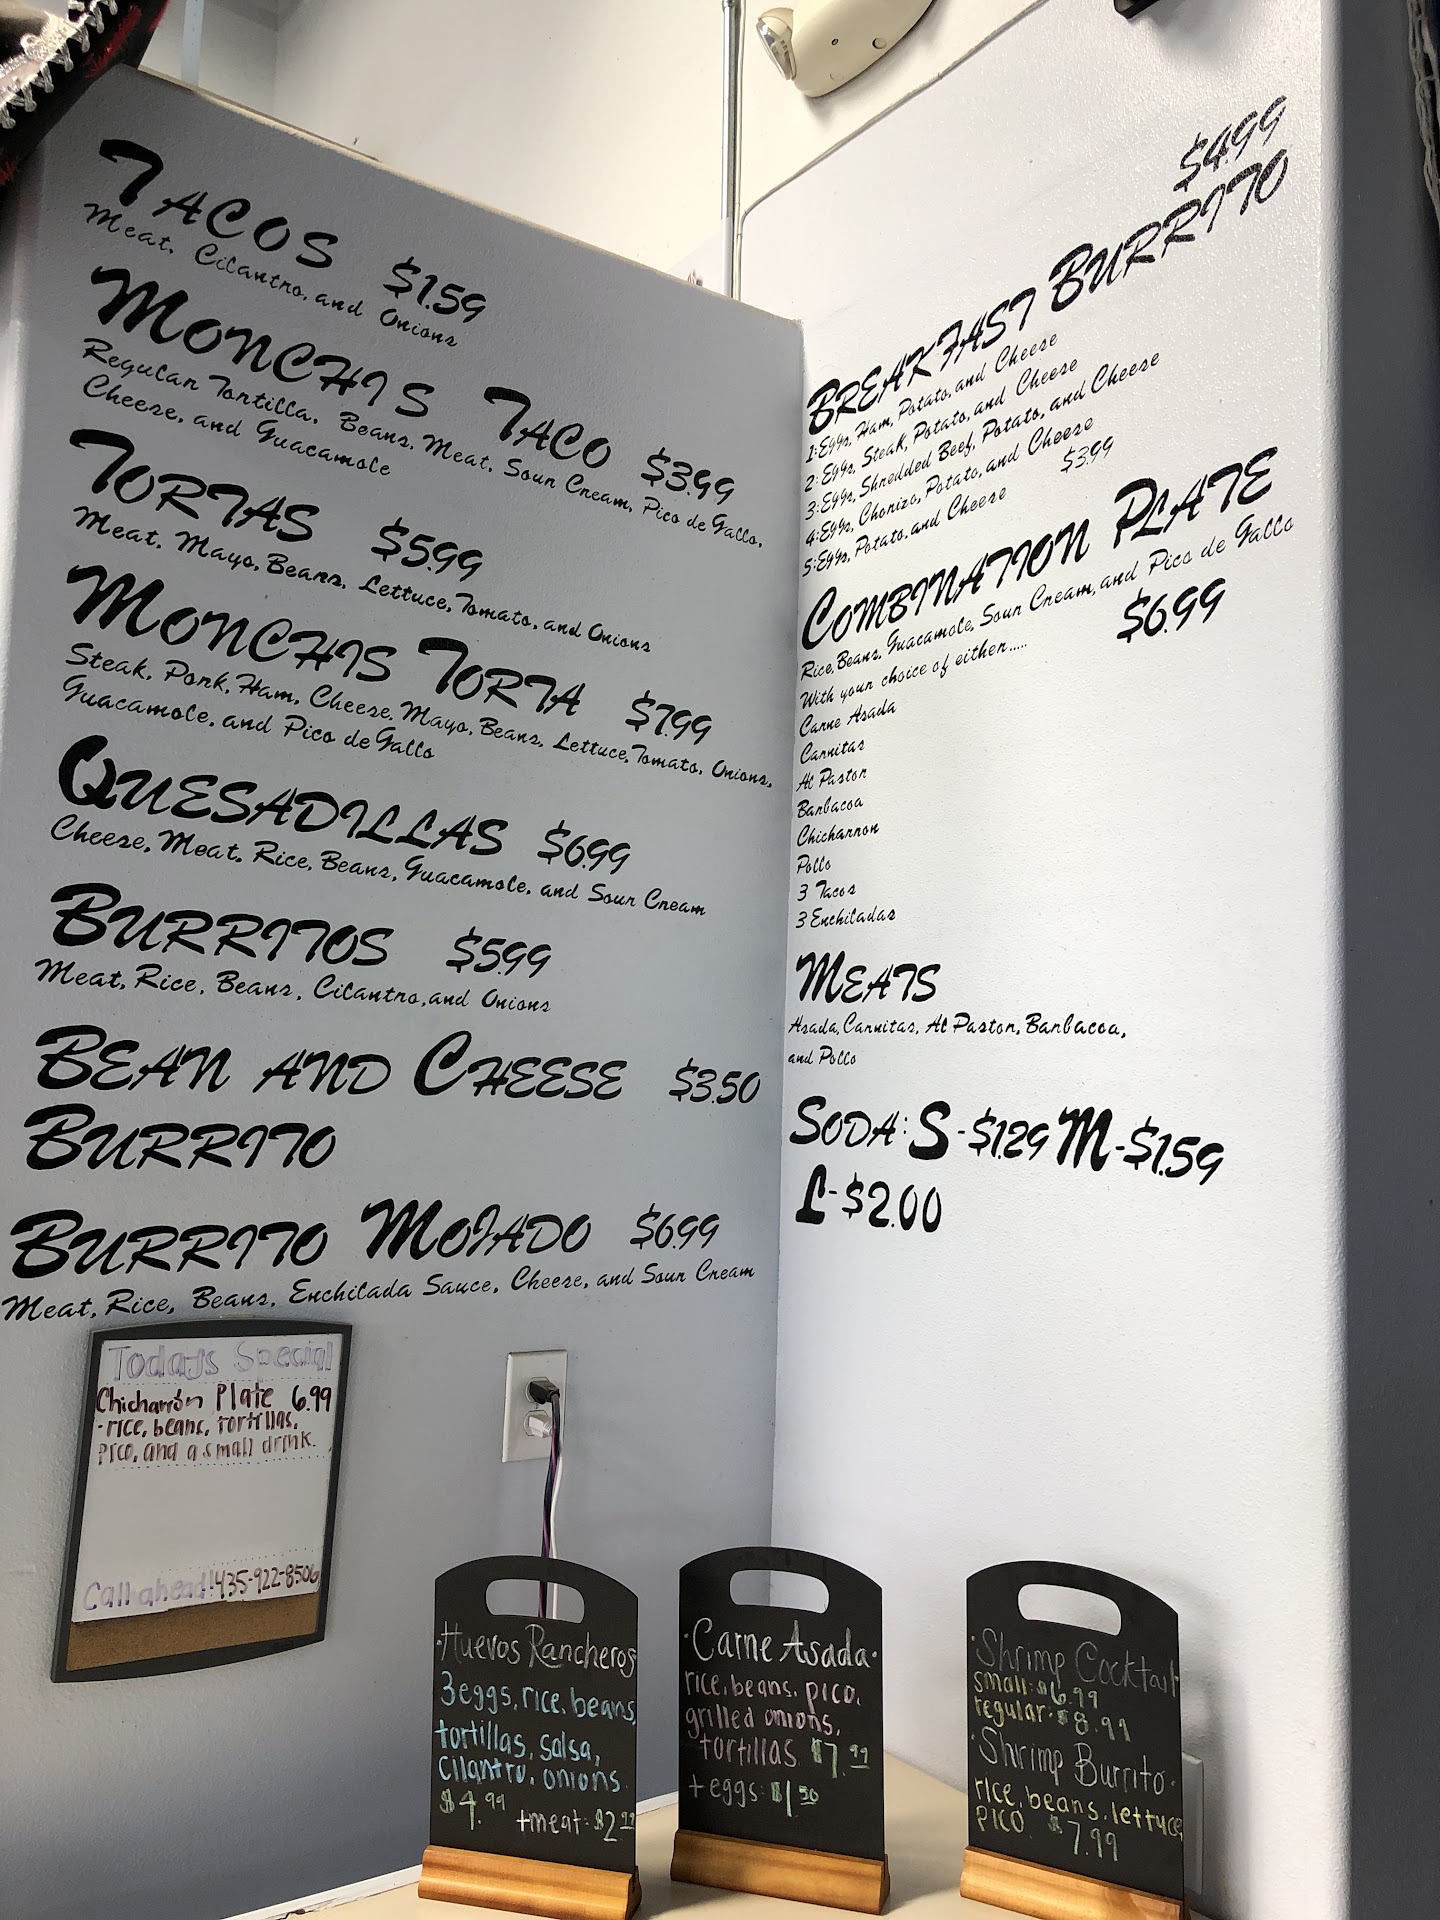 TACOS $1.59
Meat, Cilantro, and Onions
MONCHIS TACO $3.99
Regular Tortilla, Beans, Meat, Sour Cream, Pico de Gallo,
Cheese, and Guacamole
TORTAS $5.99
Meat, Mayo, Beans, Lettuce, Tomato, and Onions
MONCHIS TORTA $7.99
Steak, Pork, Ham, Cheese, Mayo, Beans, Lettuce, Tomato, Onions,
Guacamole, and Pico de Gallo
QUESADILLAS $6.99
Cheese, Meat, Rice, Beans, Guacamole, and Sour Cream
BURRITOS $5.99
Meat, Rice, Beans, Cilantro, and Onions
BEAN AND CHEESE $3.50
BURRITO
BURRITO MOJADO $6.99
Meat, Rice, Beans, Enchilada Sauce, Cheese, and Sour Cream
$4.99
BREAKFAST BURRITO
1: Eggs, Ham, Potato, and Cheese
2: Eggs, Steak, Potato, and Cheese
3: Eggs, Shredded Beef, Potato, and Cheese
4: Eggs, Chorizo, Potato, and Cheese
5: Eggs, Potato, and Cheese $3.99
COMBINATION PLATE
Rice, Beans, Guacamole, Sour Cream, and Pico de Gallo
With your choice of either..... $6.99
Carne Asada
Carnitas
Al Pastor
Barbacoa
Chicharron
Pollo
3 Tacos
3 Enchiladas
MEATS
Asada, Carnitas, Al Pastor, Barbacoa,
and Pollo
SODA: S-$1.29 M-$1.59
L-$2.00
Todays Special
Chicharrón Plate 6.99
-rice, beans, tortillas,
pico, and a small drink.
Call ahead! 435-922-8506
·Huevos Rancheros
3 eggs, rice, beans,
tortillas, salsa,
cilantro, onions
$4.99
+meat: $2.99
·Carne Asada·
rice, beans, pico,
grilled onions,
tortillas $7.99
+eggs: $1.50
·Shrimp Cocktail
small: $6.99
regular: $8.99
·Shrimp Burrito·
rice, beans, lettuce,
pico $7.99